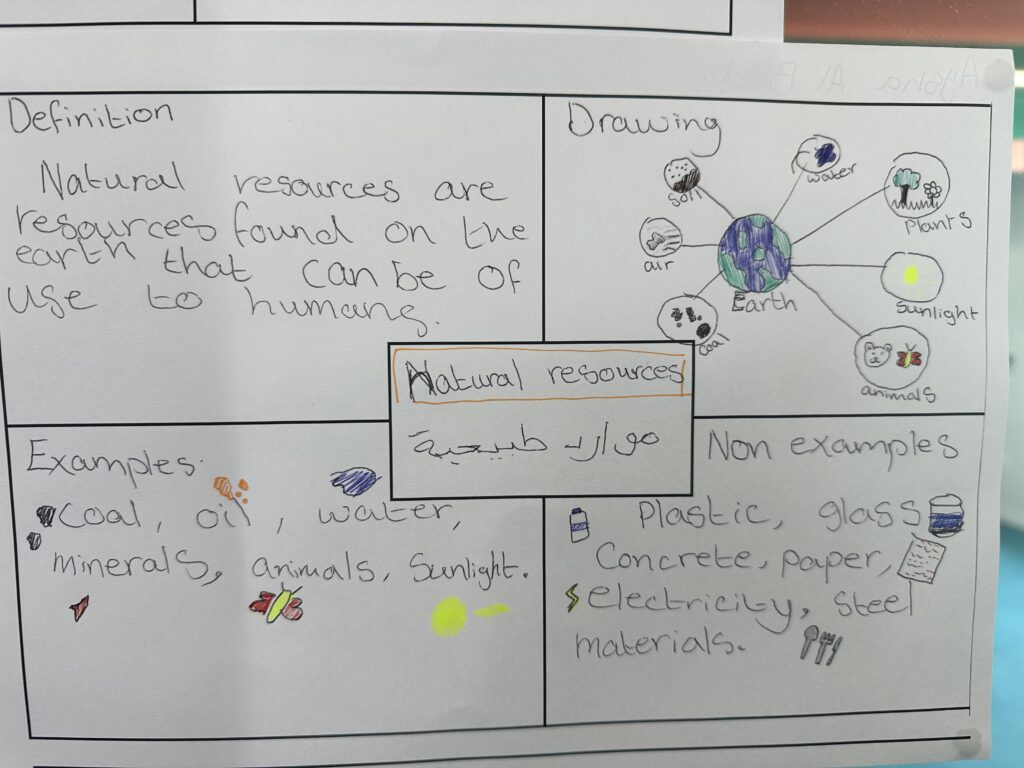 Definition
Natural resources are
resources found on the
earth that can be of
use to humans.
Drawing
soil
water
Plants
air
Earth
Sunlight
coal
animals
Natural resources
موارد طبيعية
Examples.
Coal, oil, water,
minerals, animals, Sunlight.
Non examples
Plastic, glass
Concrete, paper,
electricity, steel
materials.